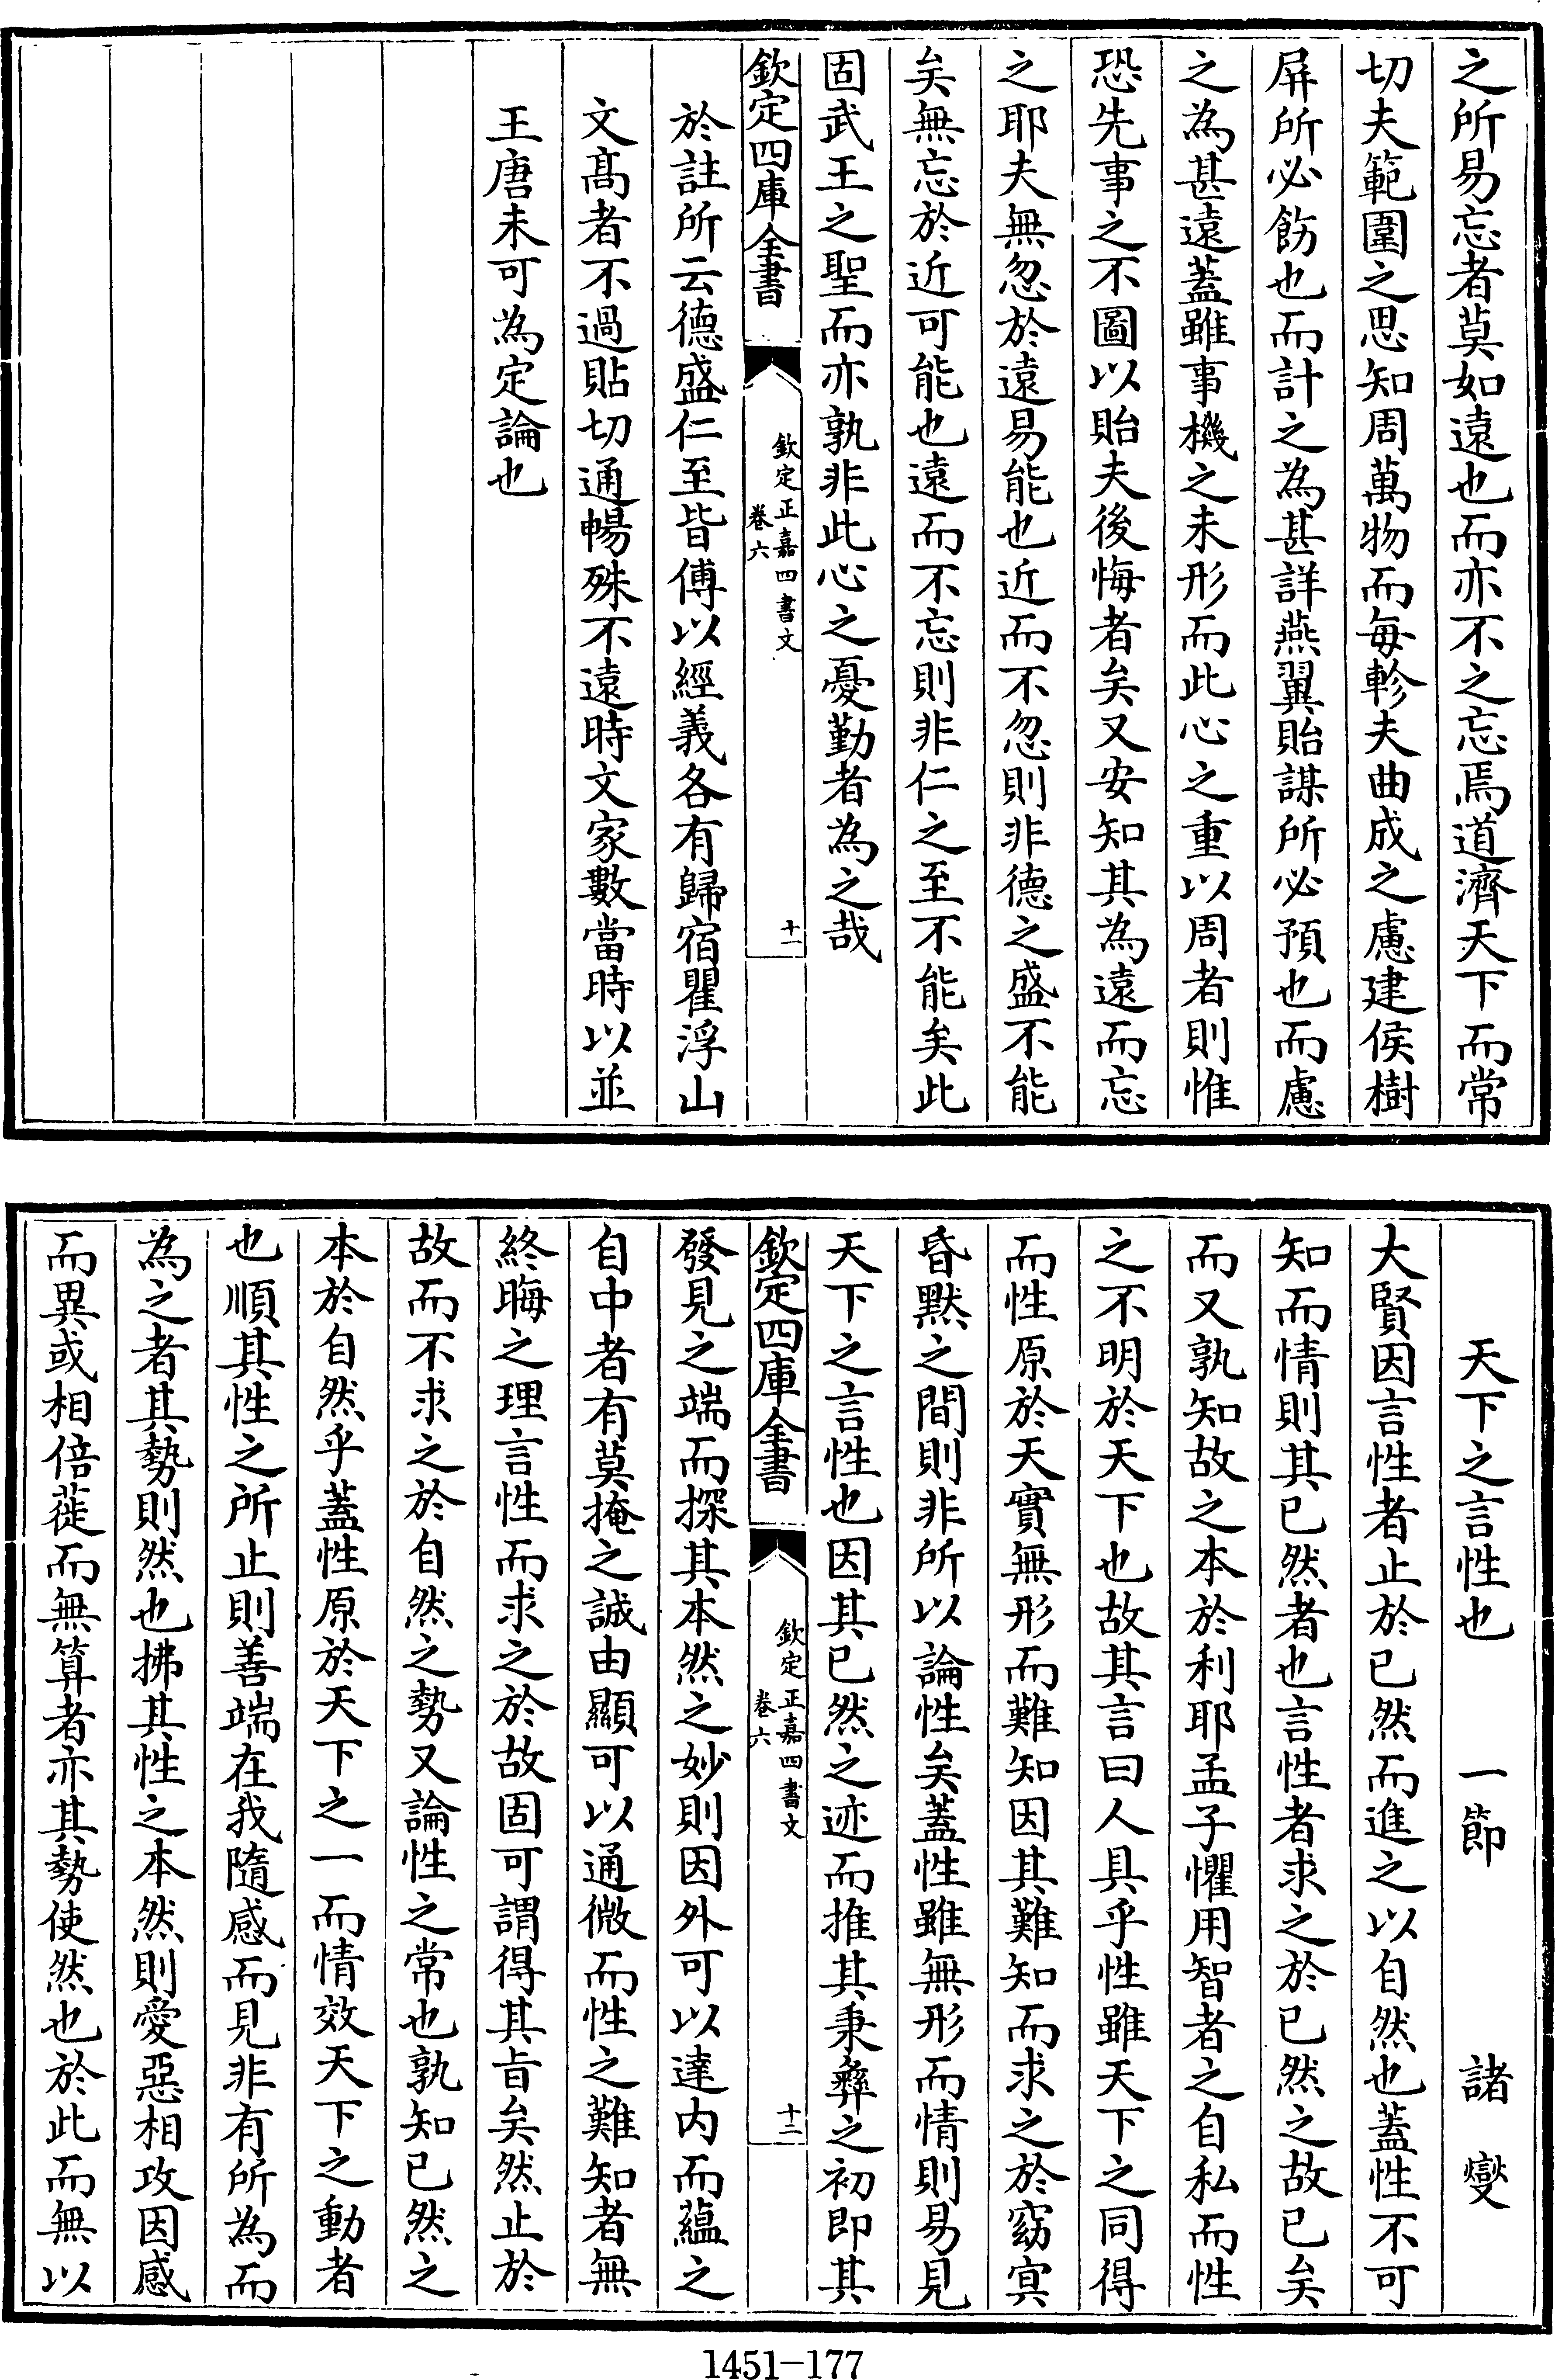 之所易忘者莫如遠也而亦不之忘焉道濟天下而常
切夫範圍之思知周萬物而每軫夫曲成之慮建侯樹
屏所必飭也而計之為甚詳燕翼貽謀所必預也而慮
之為甚遠蓋雖事機之未形而此心之重以周者則惟
恐先事之不圖以貽夫後悔者矣又安知其為遠而忘
之耶夫無忽於遠易能也近而不忽則非德之盛不能
矣無忘於近可能也遠而不忘則非仁之至不能矣此
固武王之聖而亦孰非此心之憂勤者為之哉
欽定四庫全書
欽定正嘉四書文
卷六
十一
於註所云德盛仁至皆傅以經義各有歸宿瞿浮山
文髙者不過貼切通暢殊不遠時文家數當時以並
王唐未可為定論也
天下之言性也 一節 諸燮
大賢因言性者止於已然而進之以自然也蓋性不可
知而情則其已然者也言性者求之於已然之故已矣
而又孰知故之本於利耶孟子懼用智者之自私而性
之不明於天下也故其言曰人具乎性雖天下之同得
而性原於天實無形而難知因其難知而求之於窈冥
昏默之間則非所以論性矣蓋性雖無形而情則易見
天下之言性也因其已然之迹而推其秉彝之初即其
欽定四庫全書
欽定正嘉四書文
卷六
十二
發見之端而探其本然之妙則因外可以達内而蘊之
自中者有莫掩之誠由顯可以通微而性之難知者無
終晦之理言性而求之於故固可謂得其㫖矣然止於
故而不求之於自然之勢又論性之常也孰知已然之
本於自然乎蓋性原於天下之一而情效天下之動者
也順其性之所止則善端在我隨感而見非有所為而
為之者其勢則然也拂其性之本然則愛惡相攻因感
而異或相倍蓰而無算者亦其勢使然也於此而無以
1451-177